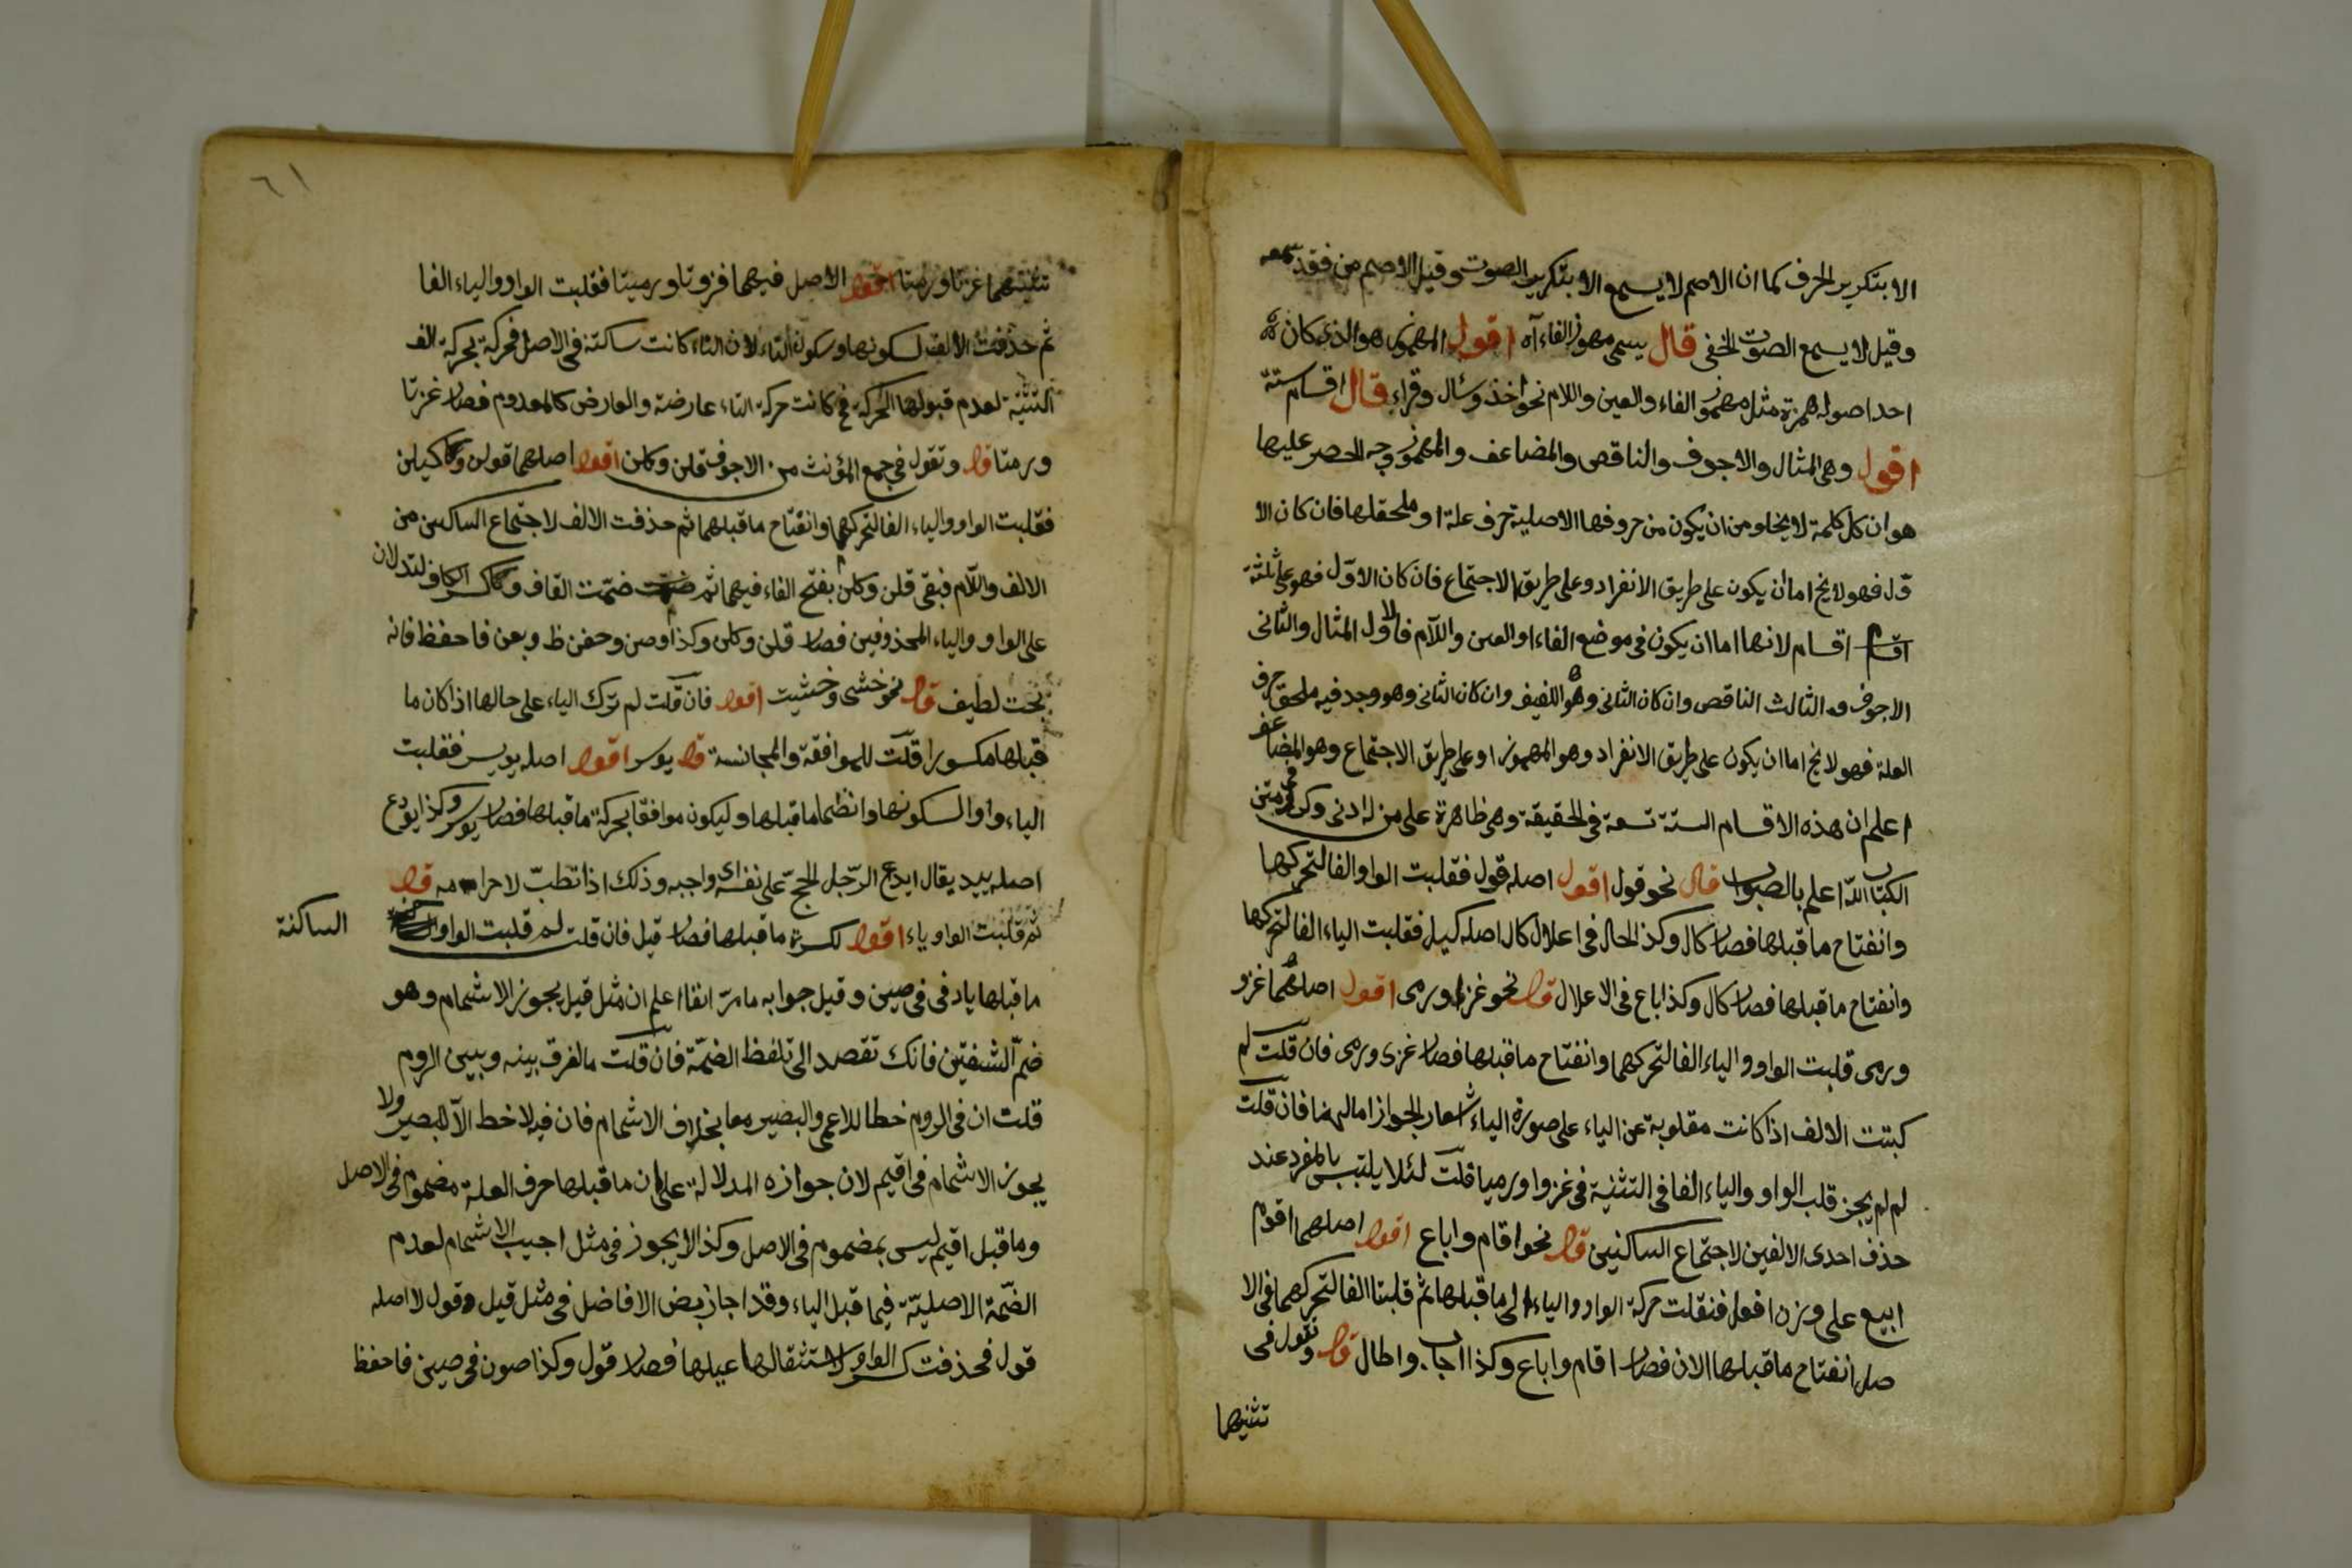 الا بتكرير الحرف كما ان الاصم لا يسمع الا بتكرير الصوت وقيل الاصم من فقد سمعه
وقيل لا يسمع الصوت الخفى قال يسمى مهموز الفاء آه اقول المهموز هو الذى كان
احد اصوله همزة مثل مهموز الفاء والعين واللام نحو اخذ وسئال وقراء قال اقسام ستة
اقول وهى المثال والاجوف والناقص والمضاعف والمهموز وجه الحصر عليها
هو ان كل كلمة لا يخلو من ان يكون من حروفها الاصلية حرف علة او ملحقلها فان كان الا
وّل فهو لا يخ اما ان يكون على طريق الانفراد وعلى طريق الاجتماع فان كان الاوّل فهو على ثلثة
اقسام لانها اما ان يكون فى موضع الفاء او العين واللآم فالاول المثال والثانى
الاجوف والثالث الناقص وان كان الثانى وهو اللفيف وان كان الثانى وهو وجد فيه ملحق حرف
العلة فهو لا يخ اما ان يكون على طريق الانفراد وهو المهموز او على طريق الاجتماع وهو المضاعف
اعلم ان هذه الاقسام الستة تسعة فى الحقيقة وهى ظاهرة على من له ادنى
الكتاب الله اعلم بالصواب قال نحو قول اقول اصله قول فقلبت الواو الفا لتحركها
وانفتاح ما قبلها فصار كال وكذ الحال فى اعلال كال اصله كيل فقلبت الياء الفا لتحركها
وانفتاح ما قبلها فصار كال وكذا باع فى الاعلال قال نحو غزا ورمى اقول اصلهما غزو
ورمى قلبت الواو والياء الفا لتحركهما وانفتاح ما قبلها فصار غزى ورمى فان قلت لم
كبتت الالف اذا كانت مقلوبة عن الياء على صورة الياء اشعار الجواز امالهما فان قلت
لم لم يجز قلب الواو والياء الفا فى التثنية فى غزوا ورميا قلت لئلا يلتبس بالمفرد عند
حذف احدى الالفين لاجتماع الساكنين قال نحو اقام واباع اقول اصلهما اقوم
ابيع على وزن افعل فنقلت حركة الواو والياء الى ما قبلها ثم قلبتا الفا لتحركهما فى الا
صل انفتاح ما قبلها الان فصار اقام واباع وكذا اجاب واطال قال وتقول فى
تثنيهما
٦١
تثنيتهما غزتا ورمتا اقول الاصل فيهما غزوتا ورميتا فقلبت الواو والياء الفا
ثم حذفت الالف لسكونها وسكون التاء لان التاء كانت ساكنة فى الاصل فحركة بحركة الف
التثنية لعدم قبولها الحركة فى كانت حركة التاء عارضة والعارض كالمعدوم فصار غزتا
ورمتا قال وتقول فى جمع المؤنث من الاجوف قلن وكلن اقول اصلهما قولن وكيلن
فقلبت الواو والياء الفا لتحركهما وانفتاح ما قبلهما ثم حذفت الالف لاجتماع الساكنين من
الالف واللّام فبقى قلن وكلن بفتح الفاء فيهما ثم ضمّت القاف وكسر الكاف لتدلان
على الواو والياء المحذوفين فصار قلن وكلن وكذا وصن وحفن ظ وبعن فاحفظ فانه
بحث لطيف قال نحو خشى وخشيت اقول فان قلت لم ترك الياء على حالها اذا كان ما
قبلها مكسورا قلت للموافقة والمجانسة قال يوسر اقول اصله ييسر فقلبت
الياء واوا لسكونها وانظما ما قبلها وليكون موافقا بحركة ما قبلها فصار يوسر وكذا يودع
اصله ييدع يقال ايدع الرّجل الحجّ على نفسه اى واجبه وذلك اذا تطبّ لاحرامه قال
ثم قلبت الواو ياء اقول لكسرة ما قبلها فصار قيل فان قلت لم قلبت الواو
الساكنة
ما قبلها ياد فى فى صين وقيل جوابه ما مرّ انفا اعلم ان مثل قيل يجوز الاشمام وهو
ضمّ الشفتين فانك تقصد الى تلفظ الضمّة فان قلت مالفرق بينه وبيين الروم
قلت ان فى الروم خطا للاعمى والبصير معا بخلاف الاشمام فان فيه لا خط الآ للبصير ولا
يجوز الاشمام فى اقيم لان جوازه المدلالة على ان ما قبلها حرف العلة مضموم فى الاصل
وما قبل اقيم ليس بمضموم فى الاصل وكذا لا يجوز فى مثل اجيب الاشمام لعدم
الضّمة الاصليّة فيما قبل الياء وقد اجاز بعض الافاضل فى مثل قيل وقول لا اصله
قول فحذفت كسر الواو لاستثقالها عيلها فصار قول وكذا صون فى صين فاحفظ